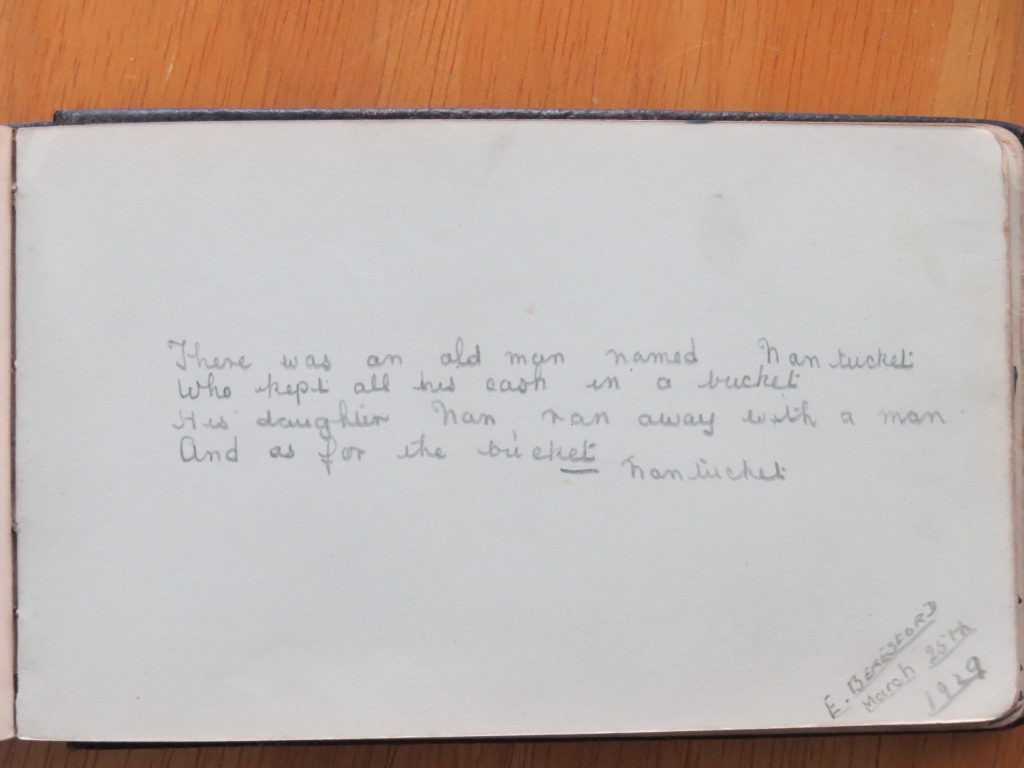 There was an old man named Nantucket
Who kept all his cash in a bucket
His daughter Nan ran away with a man
And as for the bucket Nantucket
E. BERESFORD
March 25th
1929